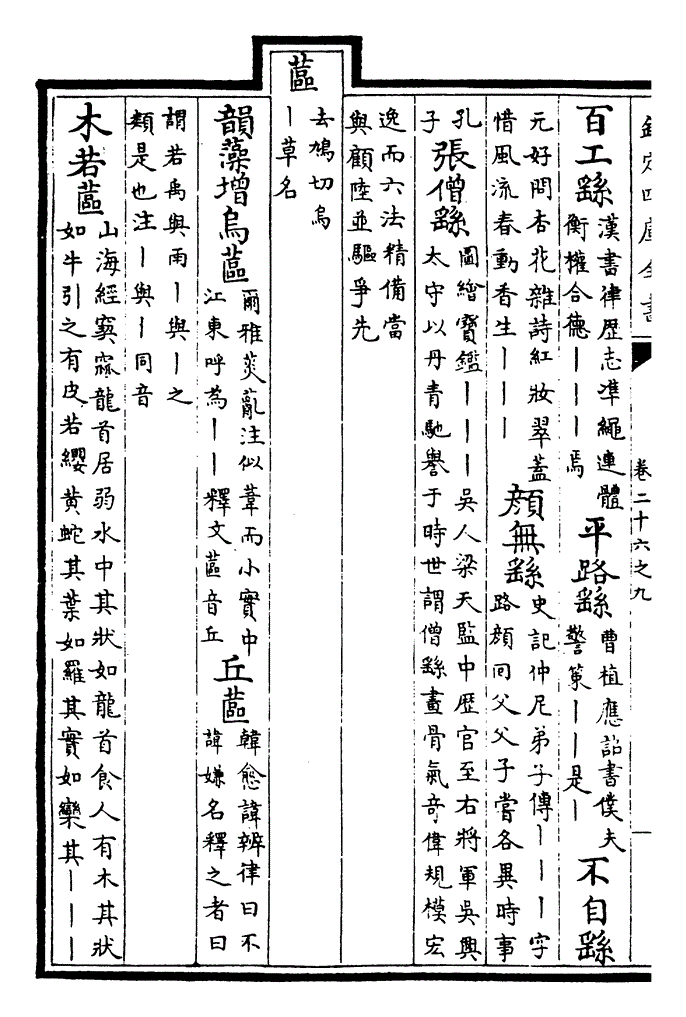 欽定四庫全書 卷二十六之九 一
百工繇 漢書律歴志凖繩連體
衡權合德丨丨丨焉 平路繇 曹植應詔書僕夫
警策丨丨是丨 不自繇
元好問杏花雜詩紅妝翠蓋
惜風流春動香生丨丨丨 顔無繇 史記仲尼弟子傳丨丨丨字
路顔回父父子嘗各異時事
孔
子 張僧繇 圖繪寶鑑丨丨丨吳人梁天監中歴官至右將軍吳興
太守以丹青馳譽于時世謂僧繇畫骨氣奇偉規模宏
逸而六法精備當
與顧陸並驅爭先
蓲 去鳩切烏
丨草名
韻藻增烏蓲 爾雅菼薍注似葦而小實中
江東呼為丨丨釋文蓲音丘 丘蓲 韓愈諱辨律曰不
諱嫌名釋之者曰
謂若禹與雨丨與丨之
類是也注丨與丨同音
木若蓲 山海經窫窳龍首居弱水中其狀如龍首食人有木其狀
如牛引之有皮若纓黄蛇其葉如羅其實如欒其丨丨丨